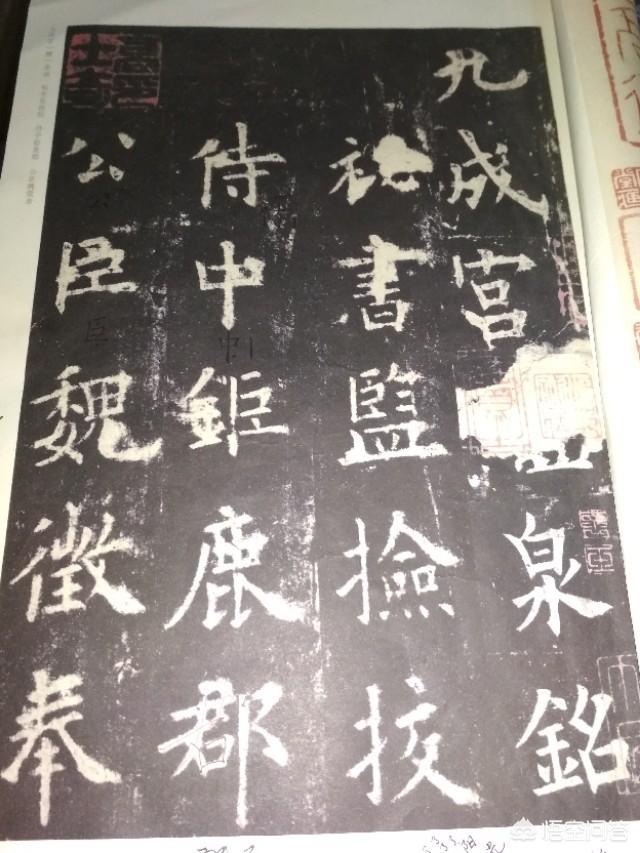 九成宮
泉銘
祕書監撿挍
侍中鉅鹿郡
公臣魏徵奉
臣
中
悟空问答